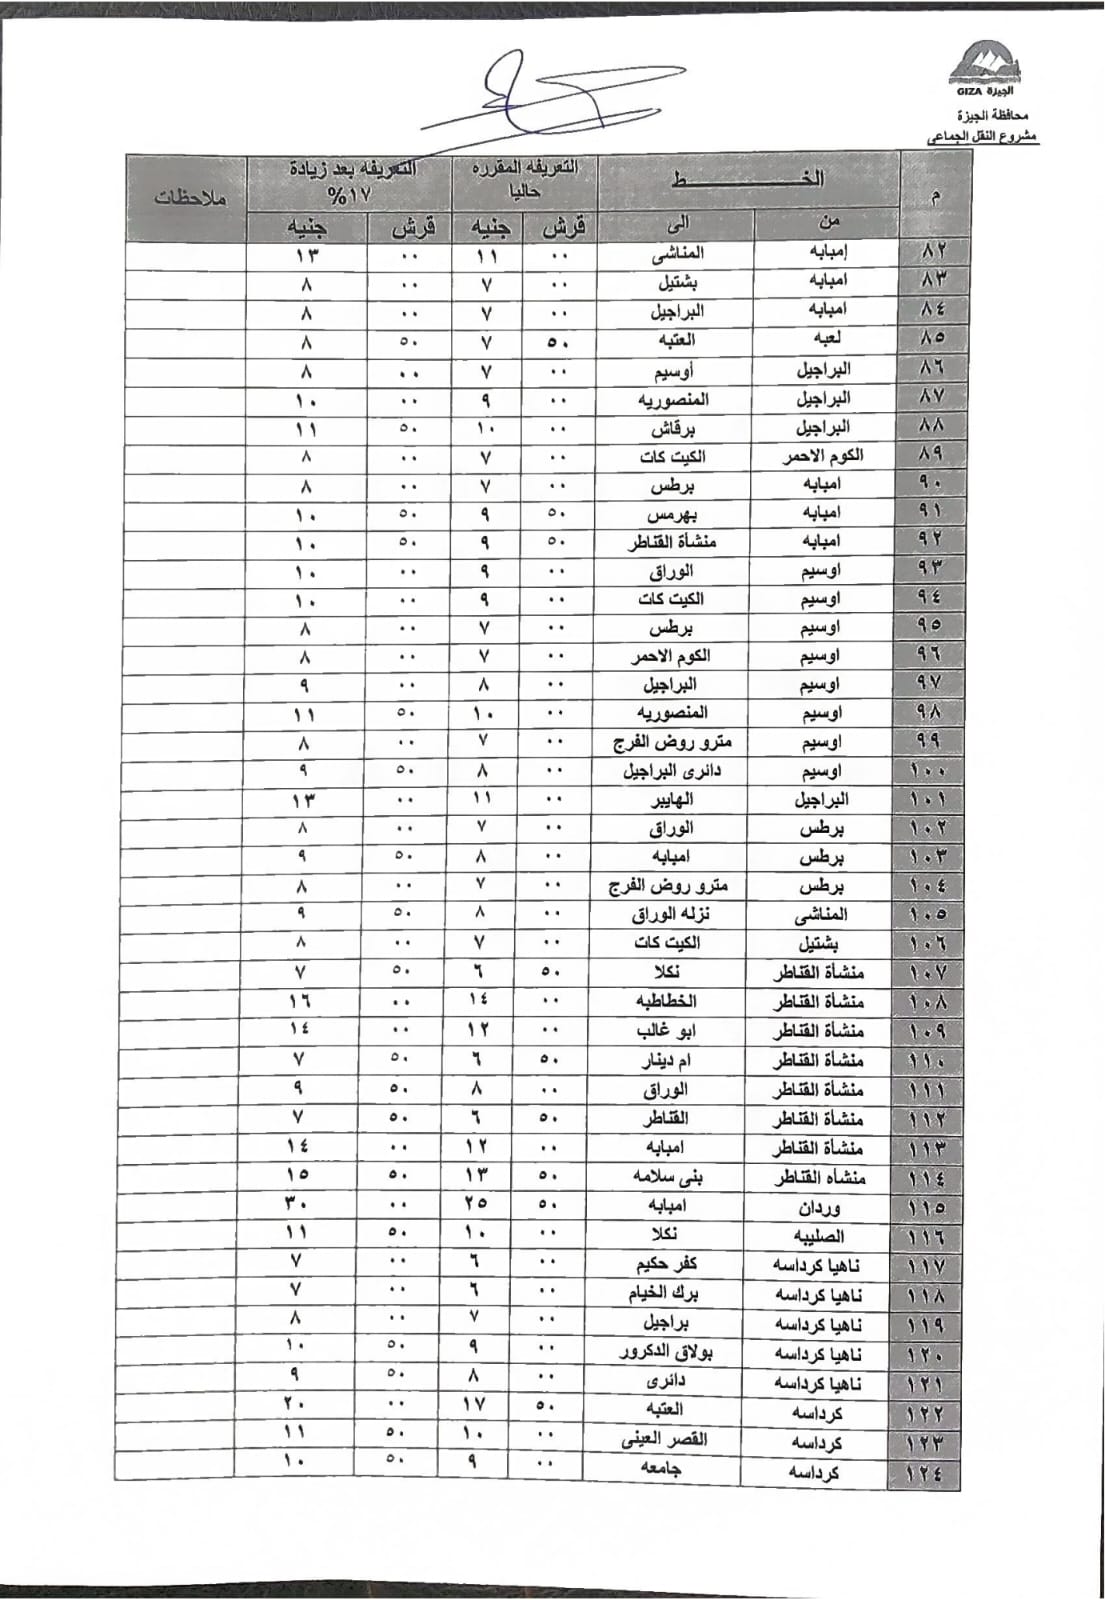 الجيزة GIZA
محافظة الجيزة
مشروع النقل الجماعى
م الخـــــــــــط التعريفه المقرره حاليا التعريفه بعد زيادة ١٧% ملاحظات
من الى قرش جنيه قرش جنيه
٨٢ إمبابه المناشى ٠٠ ١١ ٠٠ ١٣
٨٣ امبابه بشتيل ٠٠ ٧ ٠٠ ٨
٨٤ امبابه البراجيل ٠٠ ٧ ٠٠ ٨
٨٥ لعبه العتبه ٥٠ ٧ ٥٠ ٨
٨٦ البراجيل أوسيم ٠٠ ٧ ٠٠ ٨
٨٧ البراجيل المنصوريه ٠٠ ٩ ٠٠ ١٠
٨٨ البراجيل برقاش ٠٠ ١٠ ٥٠ ١١
٨٩ الكوم الاحمر الكيت كات ٠٠ ٧ ٠٠ ٨
٩٠ امبابه برطس ٠٠ ٧ ٠٠ ٨
٩١ امبابه بهرمس ٥٠ ٩ ٥٠ ١٠
٩٢ امبابه منشأة القناطر ٥٠ ٩ ٥٠ ١٠
٩٣ اوسيم الوراق ٠٠ ٩ ٠٠ ١٠
٩٤ اوسيم الكيت كات ٠٠ ٩ ٠٠ ١٠
٩٥ اوسيم برطس ٠٠ ٧ ٠٠ ٨
٩٦ اوسيم الكوم الاحمر ٠٠ ٧ ٠٠ ٨
٩٧ اوسيم البراجيل ٠٠ ٨ ٠٠ ٩
٩٨ اوسيم المنصوريه ٠٠ ١٠ ٥٠ ١١
٩٩ اوسيم مترو روض الفرج ٠٠ ٧ ٠٠ ٨
١٠٠ اوسيم دائرى البراجيل ٠٠ ٨ ٥٠ ٩
١٠١ البراجيل الهايبر ٠٠ ١١ ٠٠ ١٣
١٠٢ برطس الوراق ٠٠ ٧ ٠٠ ٨
١٠٣ برطس امبابه ٠٠ ٨ ٥٠ ٩
١٠٤ برطس مترو روض الفرج ٠٠ ٧ ٠٠ ٨
١٠٥ المناشى نزله الوراق ٠٠ ٨ ٥٠ ٩
١٠٦ بشتيل الكيت كات ٠٠ ٧ ٠٠ ٨
١٠٧ منشأة القناطر نكلا ٥٠ ٦ ٥٠ ٧
١٠٨ منشأة القناطر الخطاطبه ٠٠ ١٤ ٠٠ ١٦
١٠٩ منشأة القناطر ابو غالب ٠٠ ١٢ ٠٠ ١٤
١١٠ منشأة القناطر ام دينار ٥٠ ٦ ٥٠ ٧
١١١ منشأة القناطر الوراق ٠٠ ٨ ٥٠ ٩
١١٢ منشأة القناطر القناطر ٥٠ ٦ ٥٠ ٧
١١٣ منشأة القناطر امبابه ٠٠ ١٢ ٠٠ ١٤
١١٤ منشاه القناطر بنى سلامه ٥٠ ١٣ ٥٠ ١٥
١١٥ وردان امبابه ٥٠ ٢٥ ٠٠ ٣٠
١١٦ الصليبه نكلا ٠٠ ١٠ ٥٠ ١١
١١٧ ناهيا كرداسه كفر حكيم ٠٠ ٦ ٠٠ ٧
١١٨ ناهيا كرداسه برك الخيام ٠٠ ٦ ٠٠ ٧
١١٩ ناهيا كرداسه براجيل ٠٠ ٧ ٠٠ ٨
١٢٠ ناهيا كرداسه بولاق الدكرور ٠٠ ٩ ٥٠ ١٠
١٢١ ناهيا كرداسه دائرى ٠٠ ٨ ٥٠ ٩
١٢٢ كرداسه العتبه ٥٠ ١٧ ٠٠ ٢٠
١٢٣ كرداسه القصر العينى ٠٠ ١٠ ٥٠ ١١
١٢٤ كرداسه جامعه ٠٠ ٩ ٥٠ ١٠